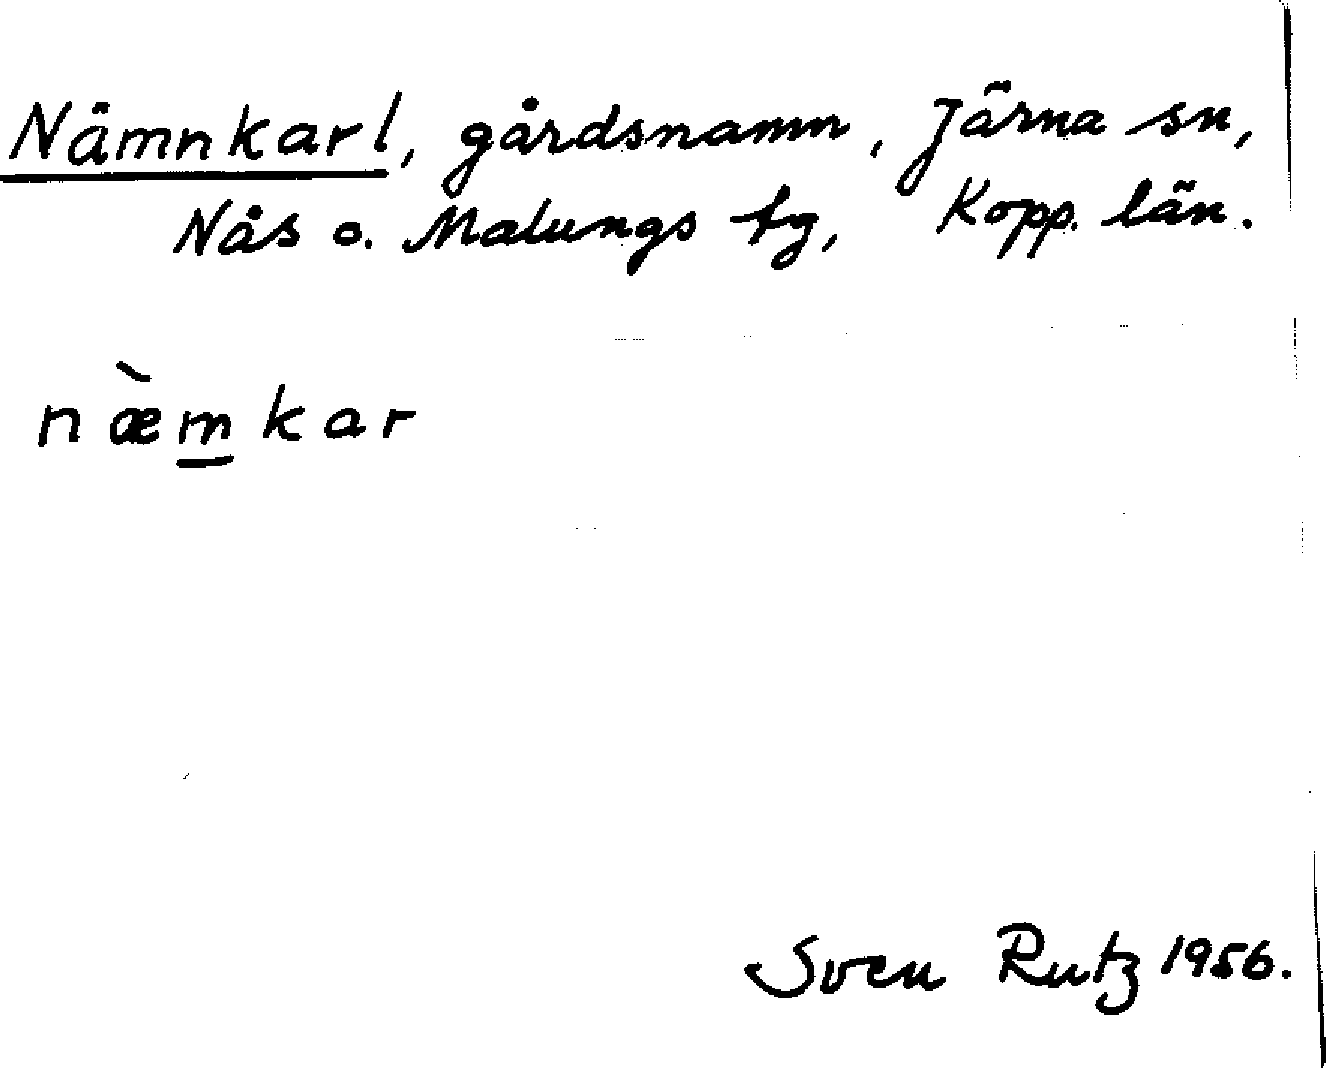 Nämnkarl, gårdsnamn, Järna sn,
Nås o. Malungs tg, Kopp. län.
næ̀m̲kar
Sven Rutz 1956.